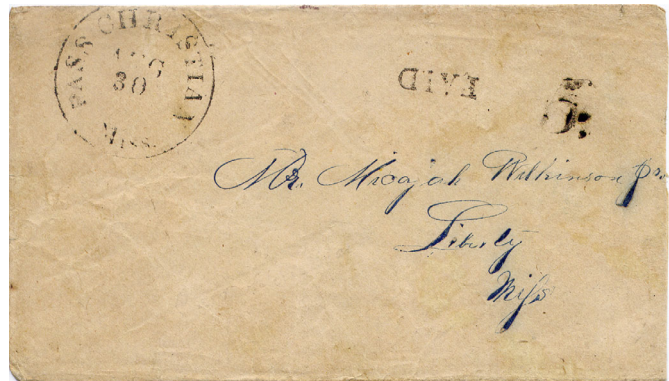 PASS CHRISTIAN
AUG
30
Miss.
PAID
5
Mr. Micajah Wilkinson Jr.
Liberty
Miss